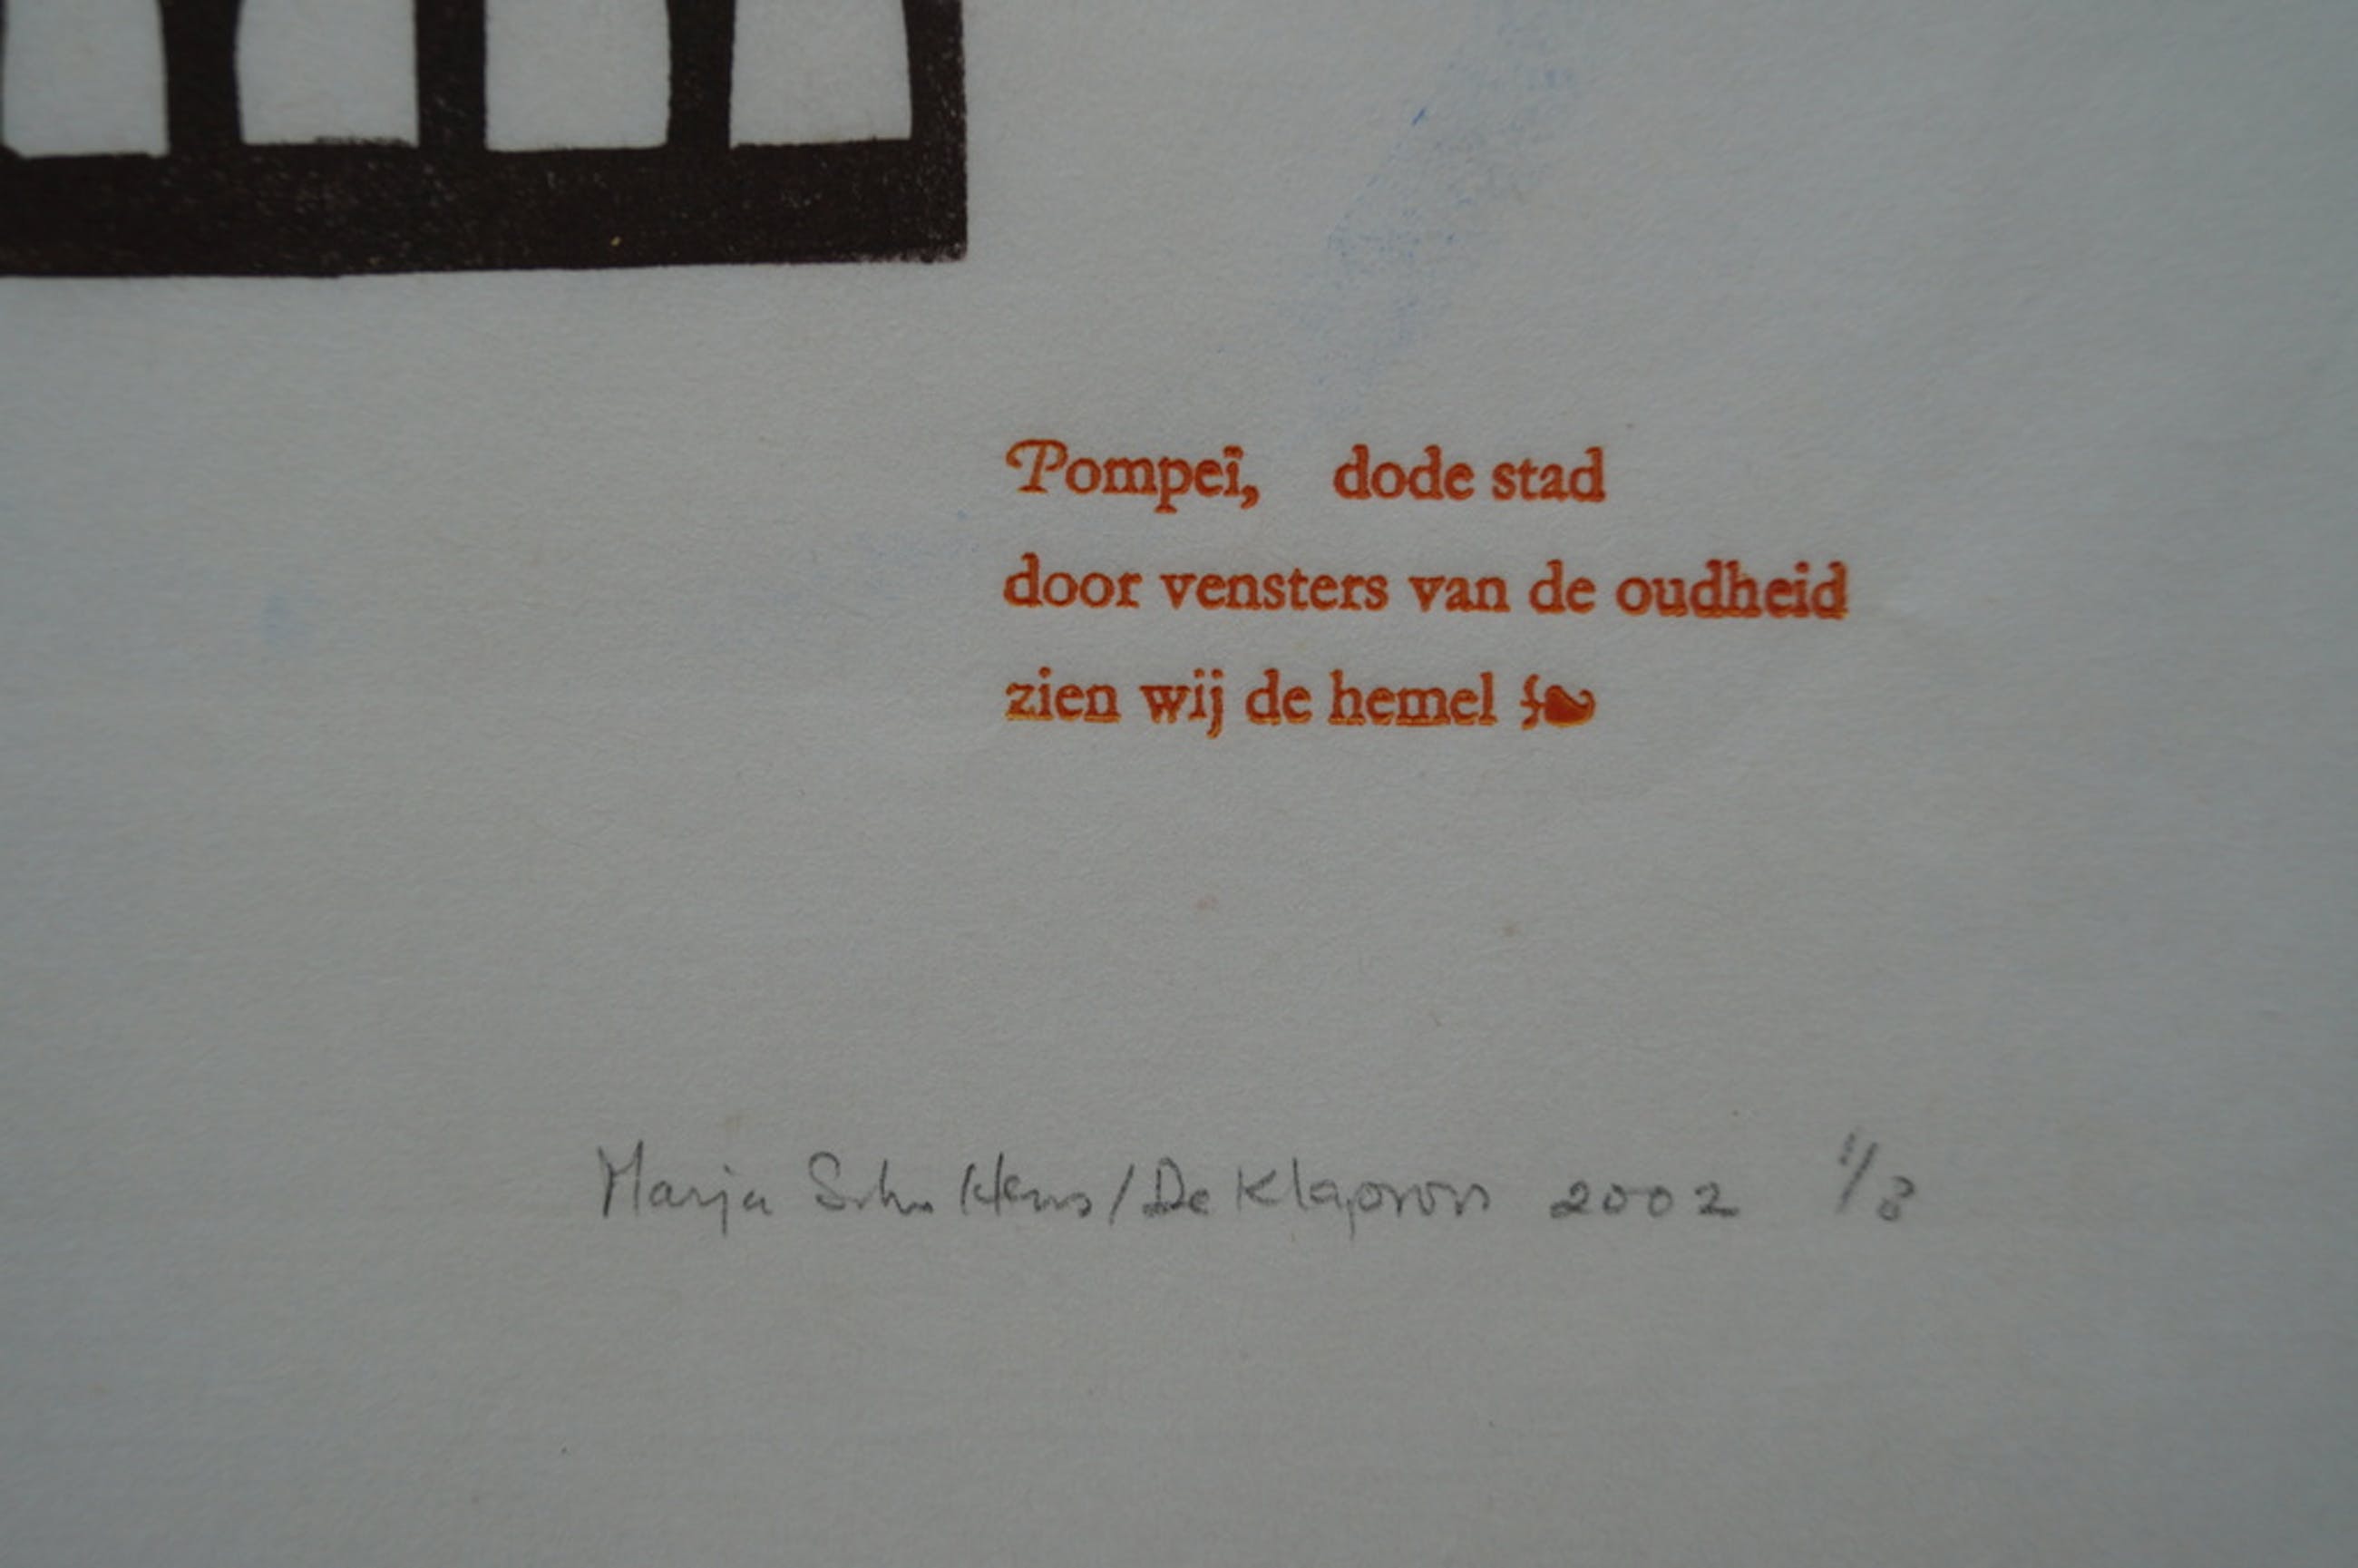 Pompeï, dode stad
door vensters van de oudheid
zien wij de hemel
Marja Scholtens / De Klaproos 2002 1/3